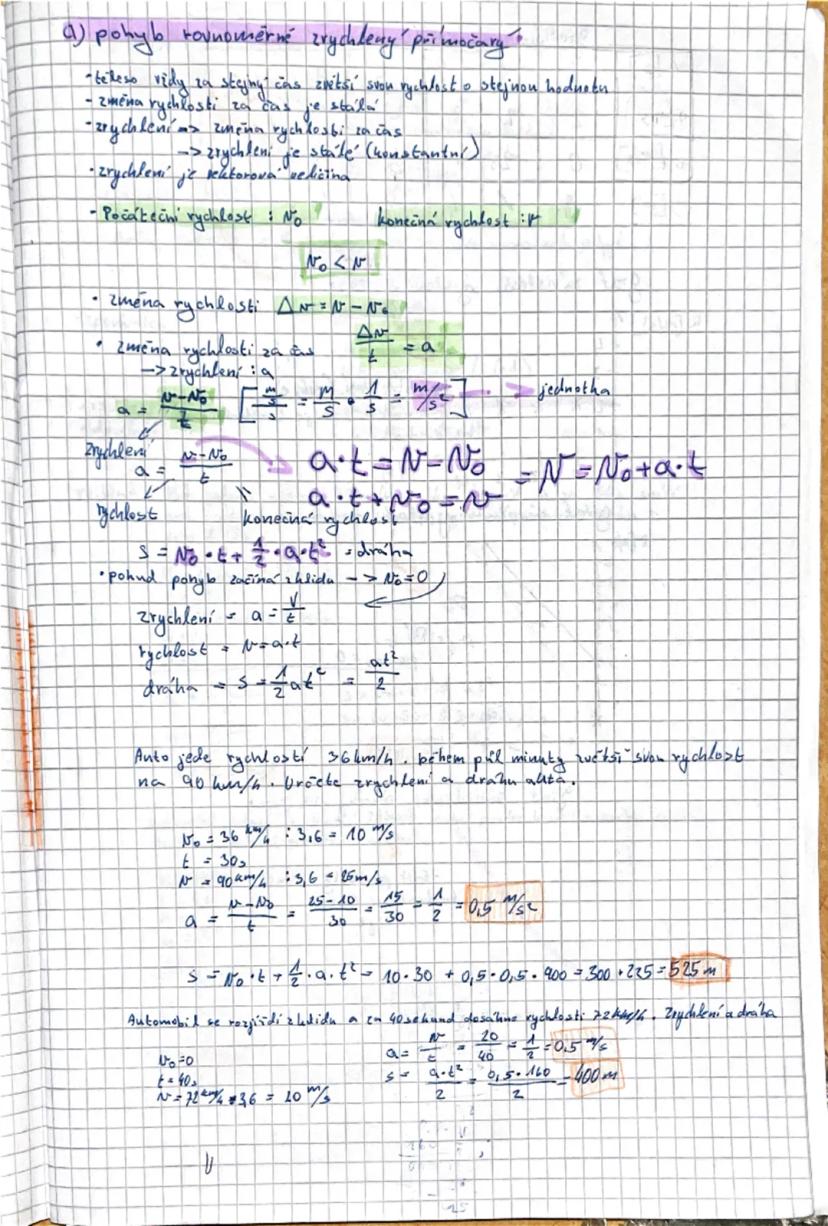 a) pohyb rovnoměrně zrychlený přímočarý
- těleso vždy za stejný čas zvětší svou rychlost o stejnou hodnotu
- změna rychlosti za čas je stálá
- zrychlení => změna rychlosti za čas
-> zrychlení je stálé (konstantní)
- zrychlení je vektorová veličina
- Počáteční rychlost : v₀ konečná rychlost : v
v₀ < v
• změna rychlosti Δv = v - v₀
• změna rychlosti za čas Δv/t = a
-> zrychlení : a
a = (v-v₀)/t [(m/s)/s = m/s • 1/s = m/s²] -> jednotka
zrychlení
a = (v-v₀)/t a·t = v - v₀ = v = v₀ + a·t
a·t + v₀ = v
rychlost konečná rychlost
s = v₀ · t + 1/2 · a · t² = dráha
• pokud pohyb začíná z klidu -> v₀ = 0
zrychlení = a = v/t
rychlost = v = a·t
dráha = s = 1/2 at² = at²/2
Auto jede rychlostí 36 km/h. během půl minuty zvětší svou rychlost
na 90 km/h. Určete zrychlení a dráhu auta.
v₀ = 36 km/h : 3,6 = 10 m/s
t = 30s
v = 90 km/h : 3,6 = 25 m/s
a = (v-v₀)/t = (25-10)/30 = 15/30 = 1/2 = 0,5 m/s²
s = v₀ · t + 1/2 · a · t² = 10·30 + 0,5·0,5·900 = 300 + 225 = 525 m
Automobil se rozjíždí z klidu a za 40 sekund dosáhne rychlosti 72 km/h. Zrychlení a dráha
v₀ = 0 a = v/t = 20/40 = 1/2 = 0,5 m/s
t = 40s s = a·t²/2 = 0,5·160/2 = 400 m
v = 72 km/h : 3,6 = 20 m/s